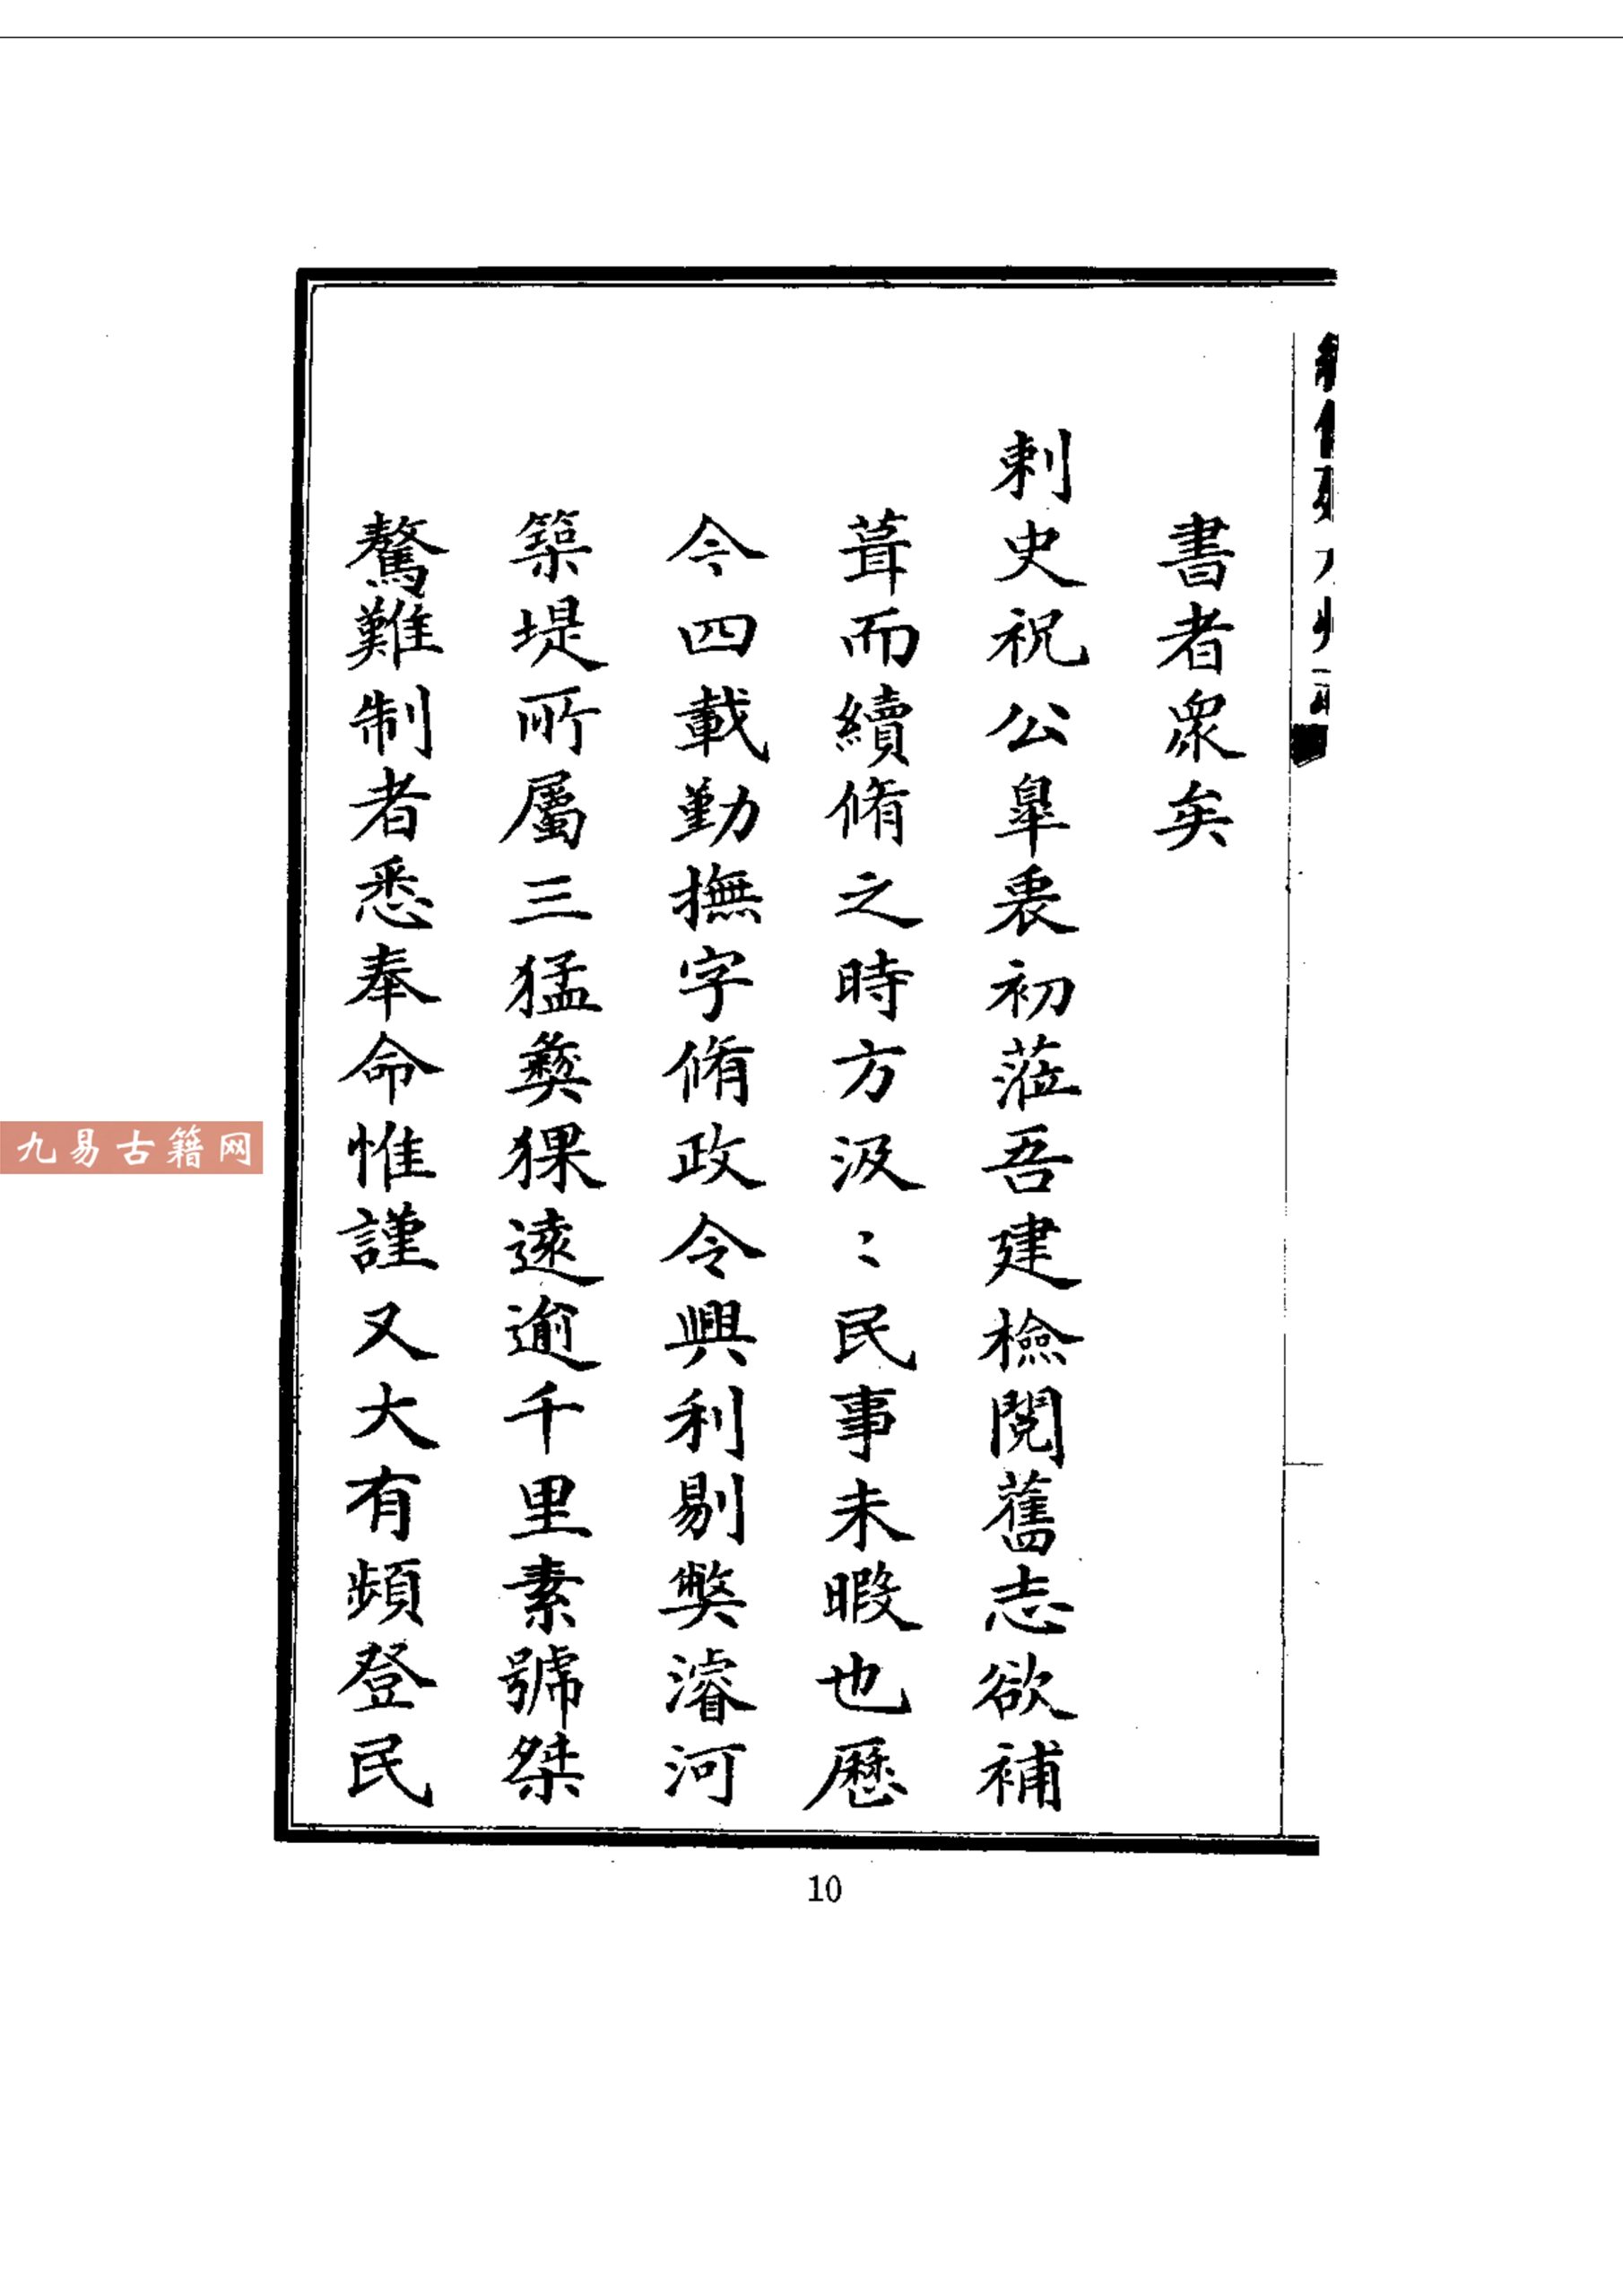 書者衆矣
刺史祝公臯裒初蒞吾建檢閱舊志欲補
葺而續脩之時方汲〻民事未暇也歷
今四載勤撫字脩政令興利剔弊濬河
築堤所屬三猛彝猓遠逾千里素號桀
驁難制者悉奉命惟謹又大有頻登民
九易古籍网
10